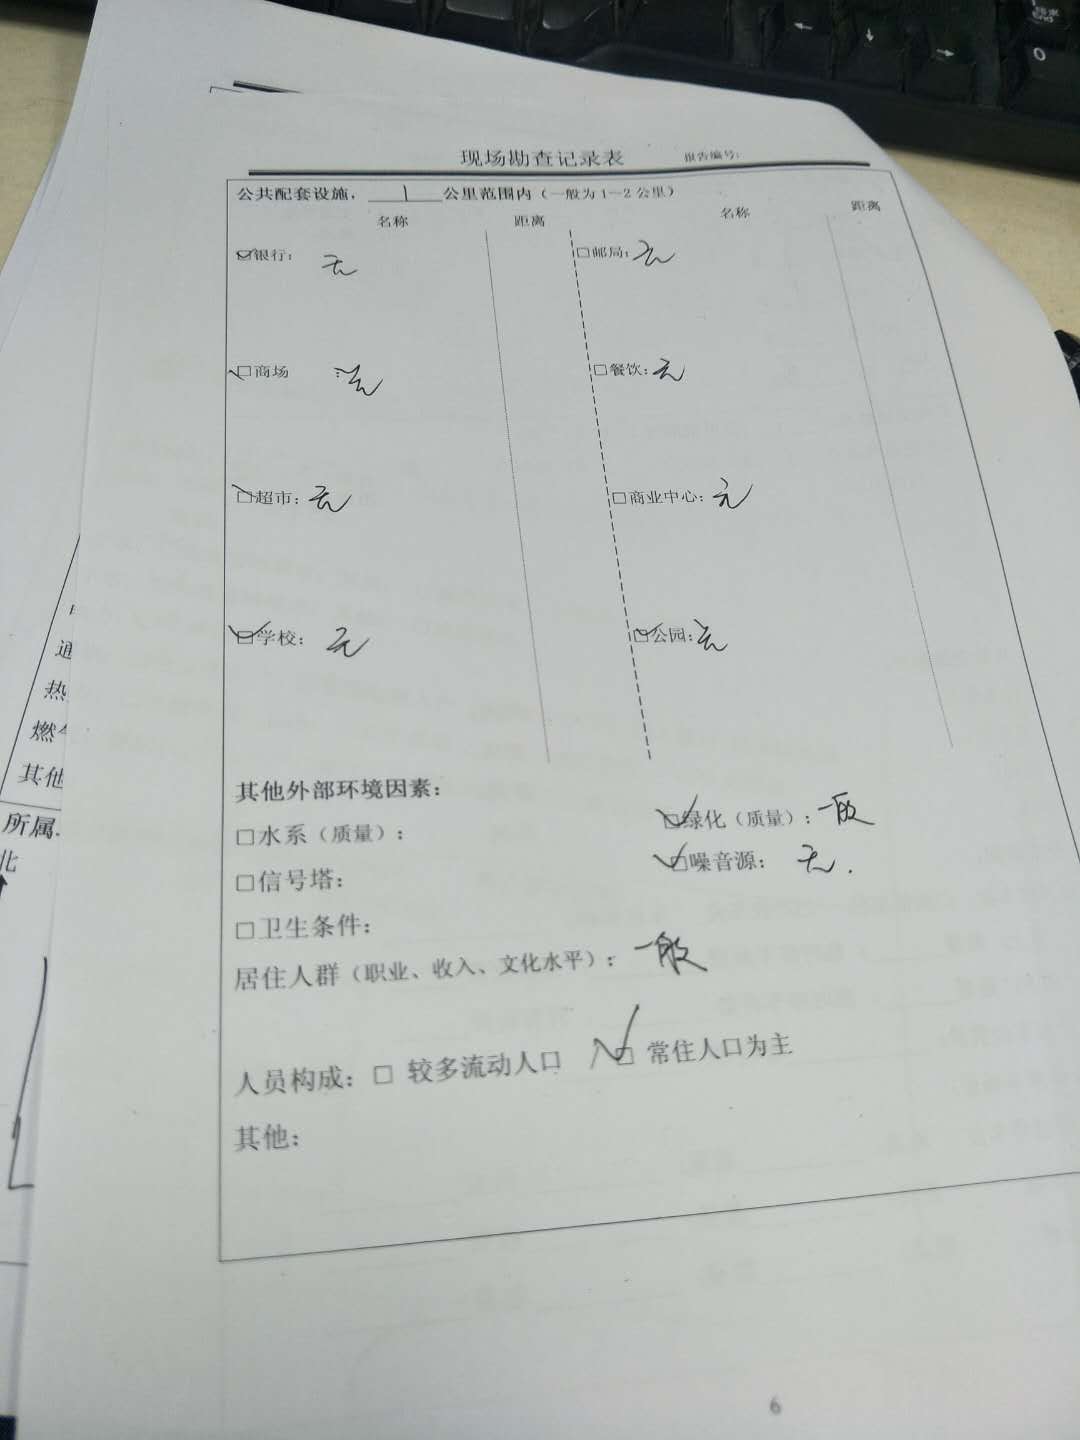 现场勘查记录表 报告编号:
公共配套设施, 1 公里范围内(一般为1—2公里)
名称 距离 名称 距离
☑银行: 无 □邮局: 无
☑商场 : 无 □餐饮: 无
☑超市: 无 □商业中心: 无
☑学校: 无 ☑公园: 无
其他外部环境因素:
□水系(质量): ☑绿化(质量): 一般
□信号塔: ☑噪音源: 无.
□卫生条件:
居住人群(职业、收入、文化水平): 一般
人员构成: □ 较多流动人口 ☑ 常住人口为主
其他:
6
通
热
燃气
其他
所属
北
End
0